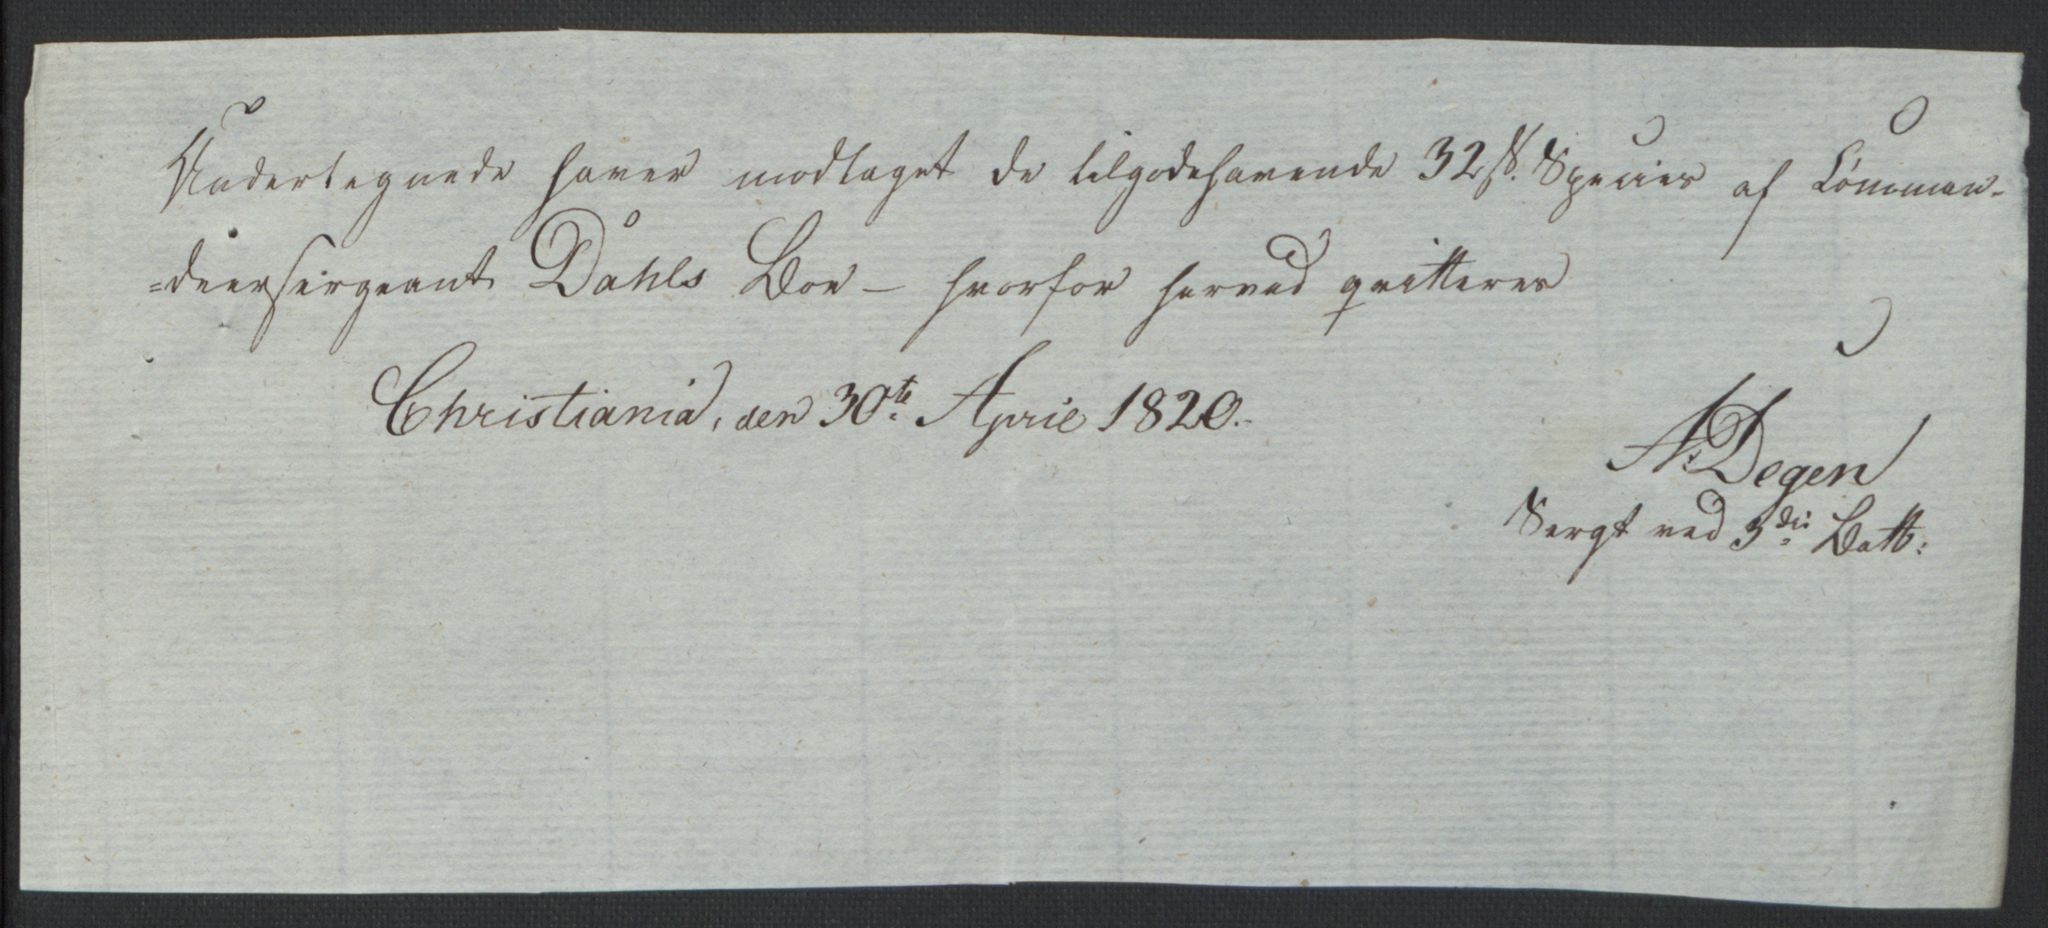 Undertegnede haver modtaget de tilgodehavende 32 ß. Species af Comman-
=deersergeant Dahls Boe – hvorfor herved qvitteres
Christiania, den 30te April 1820.
A. Degen
Sergt ved 3die Batt: